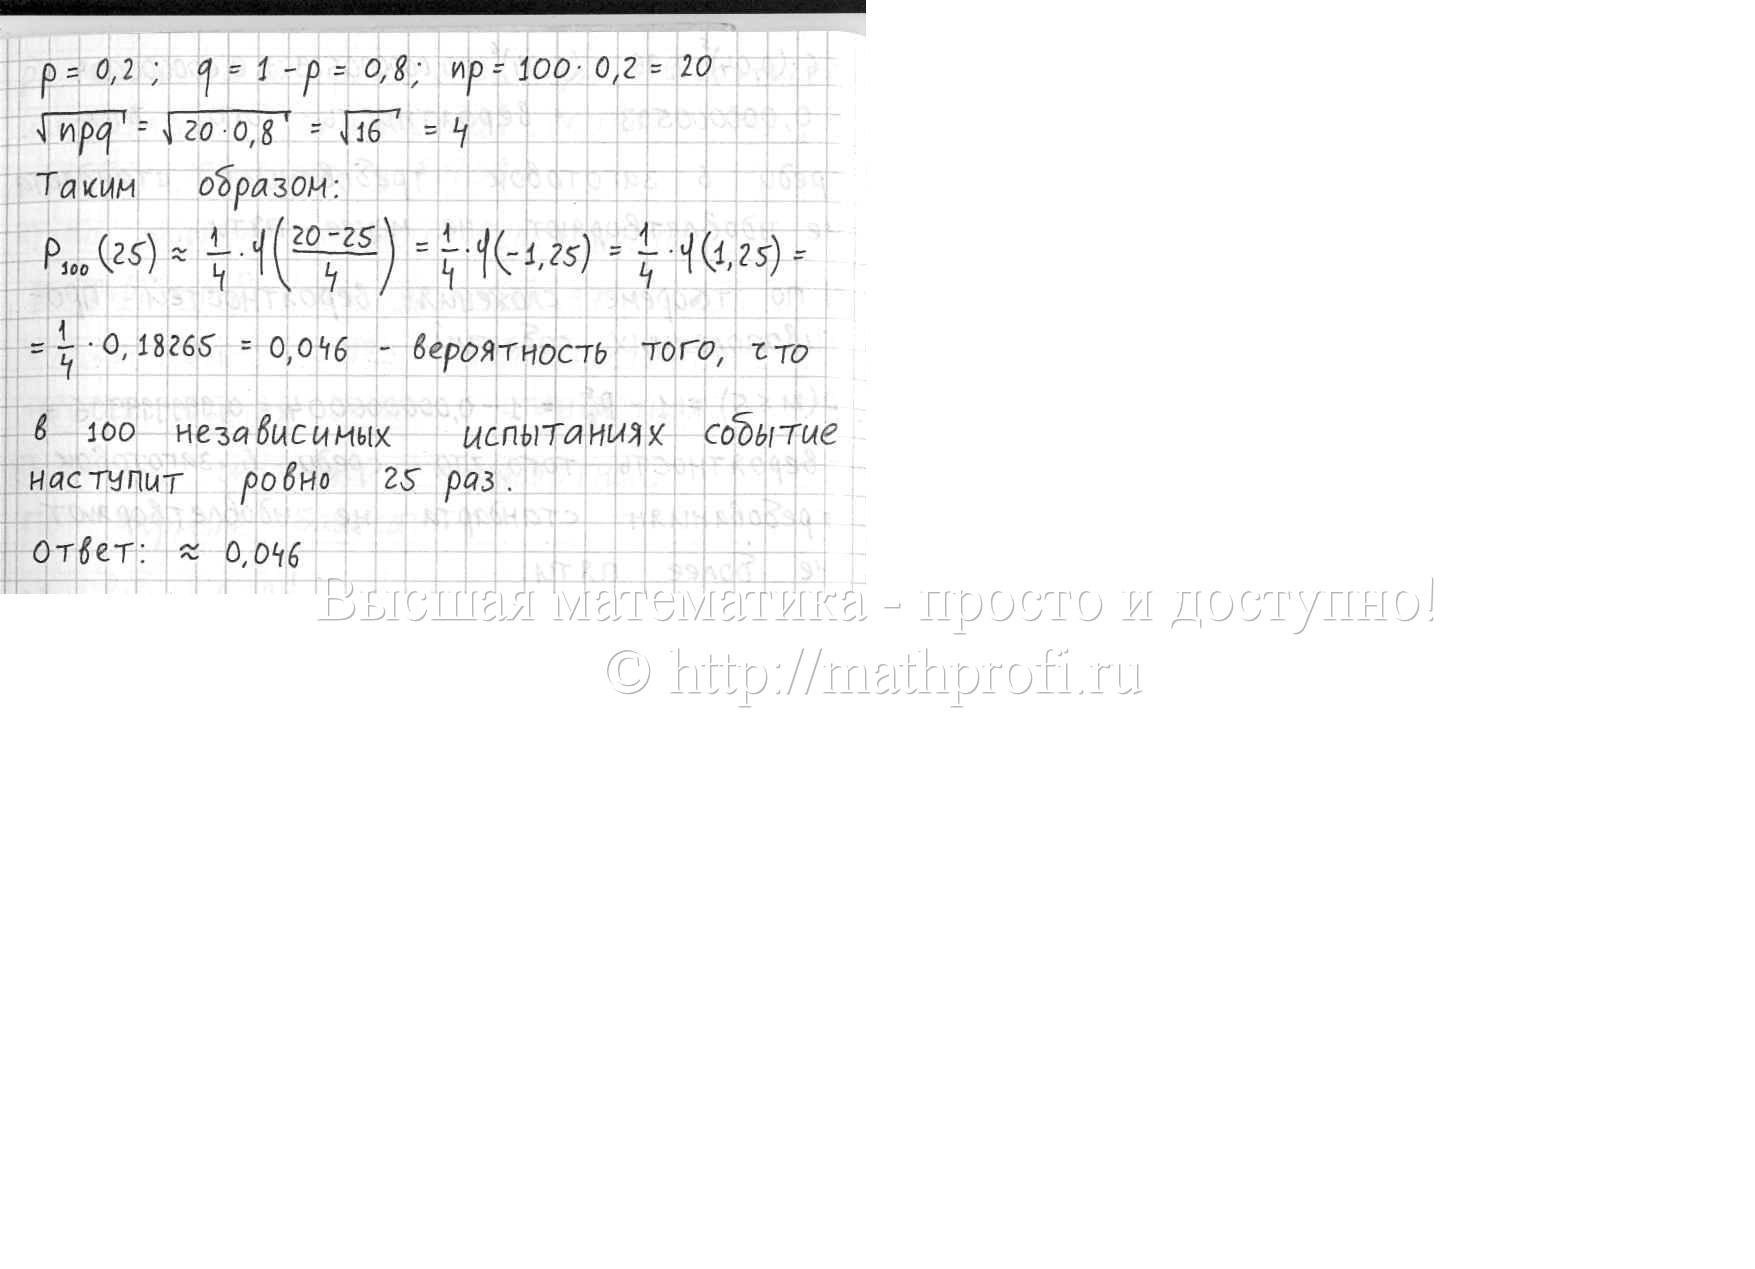 p = 0,2 ; q = 1 - p = 0,8 ; np = 100 · 0,2 = 20
√npq = √20 · 0,8 = √16 = 4
Таким образом:
P₁₀₀(25) ≈ 1/4 · φ((20 - 25)/4) = 1/4 · φ(-1,25) = 1/4 · φ(1,25) =
= 1/4 · 0,18265 = 0,046 - вероятность того, что
в 100 независимых испытаниях событие
наступит ровно 25 раз.
Ответ: ≈ 0,046
Высшая математика - просто и доступно!
© http://mathprofi.ru